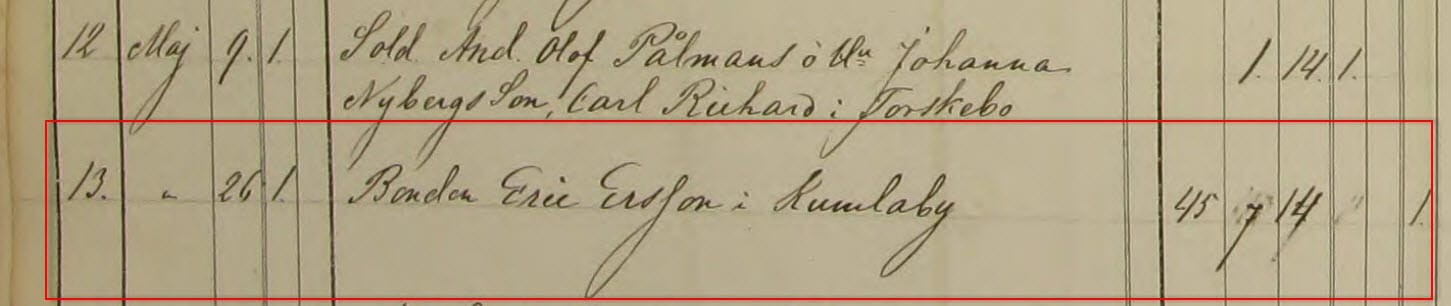 12 Maj 9. 1. Sold. And. Olof Pålmans ò Hu Johanna 1. 14. 1.
Nybergs Son, Carl Richard i Torskebo
13. " 26 1. Bonden Eric Ersson i Kumlaby 45 7 14 " 1.